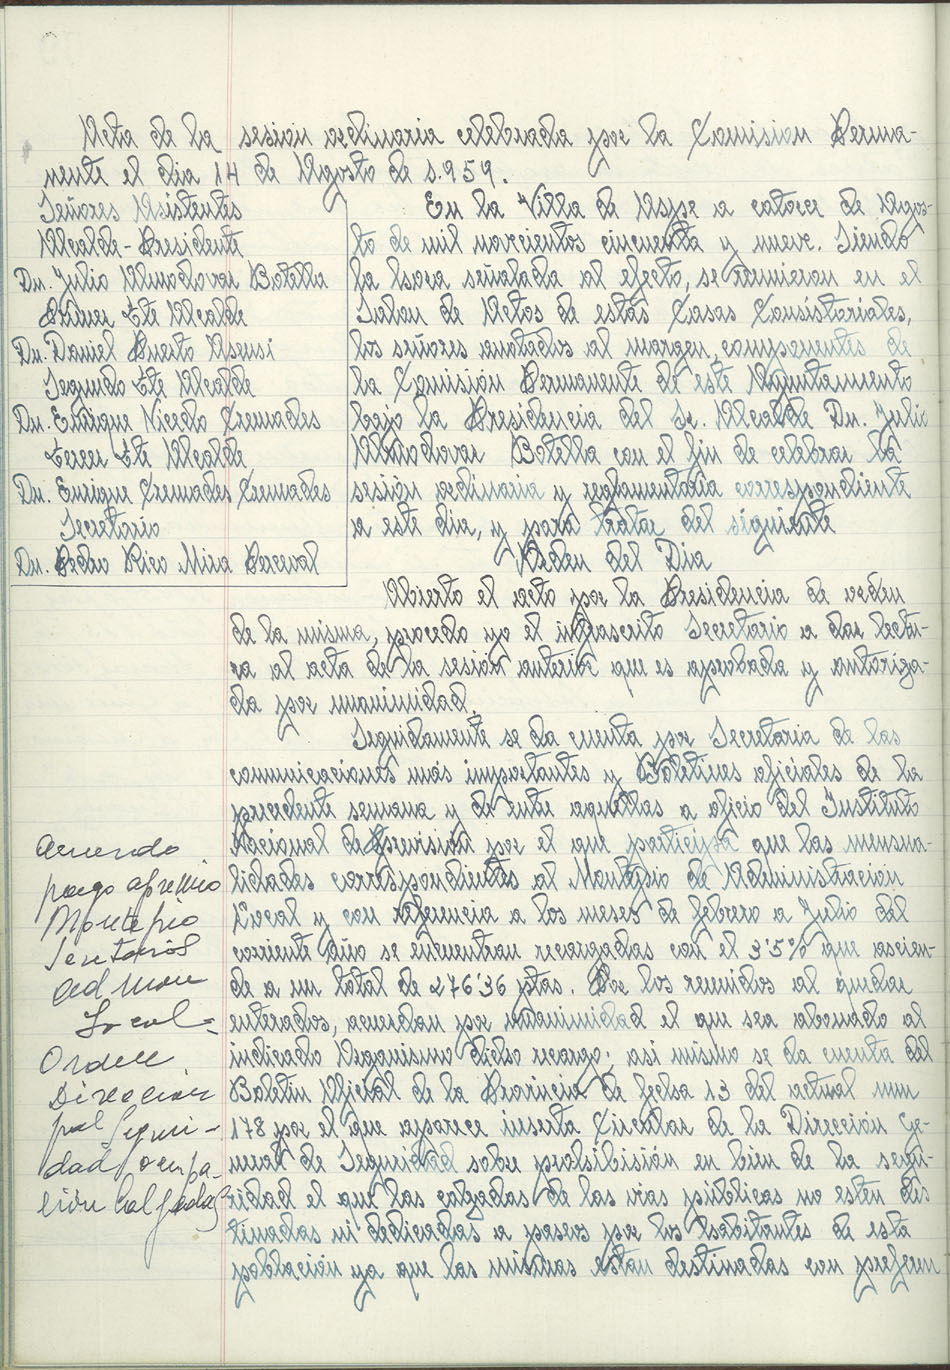 Acta de la sesion ordinaria celebrada por la Comision Perma-
nente el dia 14 de Agosto de 1.959.
Señores Asistentes
Alcalde-Presidente
Dn. Julio Almodovar Botella
Primer Tte Alcalde
Dn. Daniel Puerto Asensi
Segundo Tte Alcalde
Dn. Enrique Vicedo Cremades
Tercer Tte Alcalde
Dn. Enrique Cremades Cremades
Secretario
Dn. Pedro Rico Mira Perceval
En la Villa de Aspe a catorce de Agos-
to de mil novecientos cincuenta y nueve. Siendo
la hora señalada al efecto, se reunieron en el
Salon de Actos de estas Casas Consistoriales,
los señores anotados al margen, componentes de
la Comisión Permanente de este Ayuntamiento
bajo la Presidencia del Sr. Alcalde Dn. Julio
Almodovar Botella con el fin de celebrar la
sesión ordinaria y reglamentaria correspondiente
a este dia, y para tratar del siguiente
Orden del Dia
Abierto el acto por la Presidencia de orden
de la misma, procedo yo el infrascrito Secretario a dar lectu-
ra al acta de la sesión anterior que es aprobada y autoriza-
da por unanimidad.
Seguidamente se da cuenta por Secretaria de las
comunicaciones más importantes y Boletines oficiales de la
precedente semana y de entre aquellas a oficio del Instituto
Nacional de Prevision por el que participa que las mensua-
lidades correspondientes al Montepio de Administración
Local y con referencia a los meses de febrero a Julio del
corriente año se encuentran recargadas con el 3'5% que ascien-
de a un total de 276'36 ptas. Por los reunidos al quedar
enterados, acuerdan por unanimidad el que sea abonado al
indicado Organismo dicho recargo; asi mismo se da cuenta del
Boletin Oficial de la Provincia de fecha 13 del actual num
178 por el que aparece inserta Circular de la Dirección Ge-
neral de Seguridad sobre prohibisión en bien de la segu-
ridad el que las calzadas de las vias públicas no esten des
tinadas ni dedicadas a paseos por los habitantes de esta
población ya que las mismas estan destinadas con preferen
Acuerdo
pago apremio
Montepio
Admon
Local=
Orden
Direccion
gral Seguri-
dad ocupa-
ción Calzadas